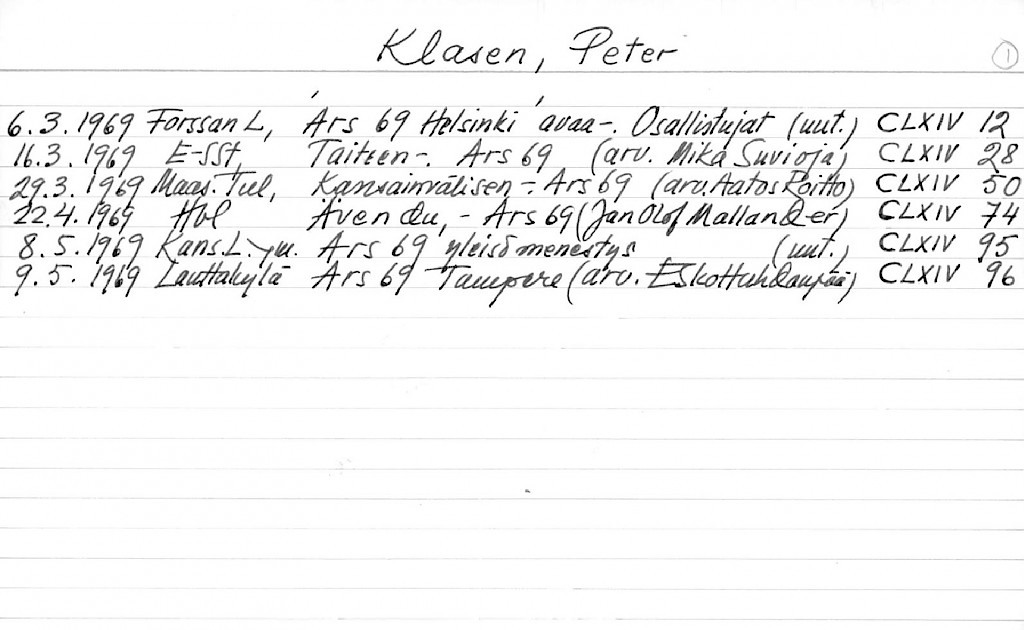 Klasen, Peter 1
6.3.1969 Forssan L, Ars 69 Helsinki avaa-. Osallistujat (uut.) CLXIV 12
16.3.1969 E-SSt, Taiteen-. Ars 69 (arv. Mika Suvioja) CLXIV 28
29.3.1969 Maas. Tul, Kansainvälisen - Ars 69 (arv. Aatos Roitto) CLXIV 50
22.4.1969 Hbl Även du, - Ars 69 (Jan Olof Mallander) CLXIV 74
8.5.1969 Kans.L. ym. Ars 69 yleisömenestys (uut.) CLXIV 95
9.5.1969 Lauttakylä Ars 69 Tampere (arv. Esko Huhdanpää) CLXIV 96